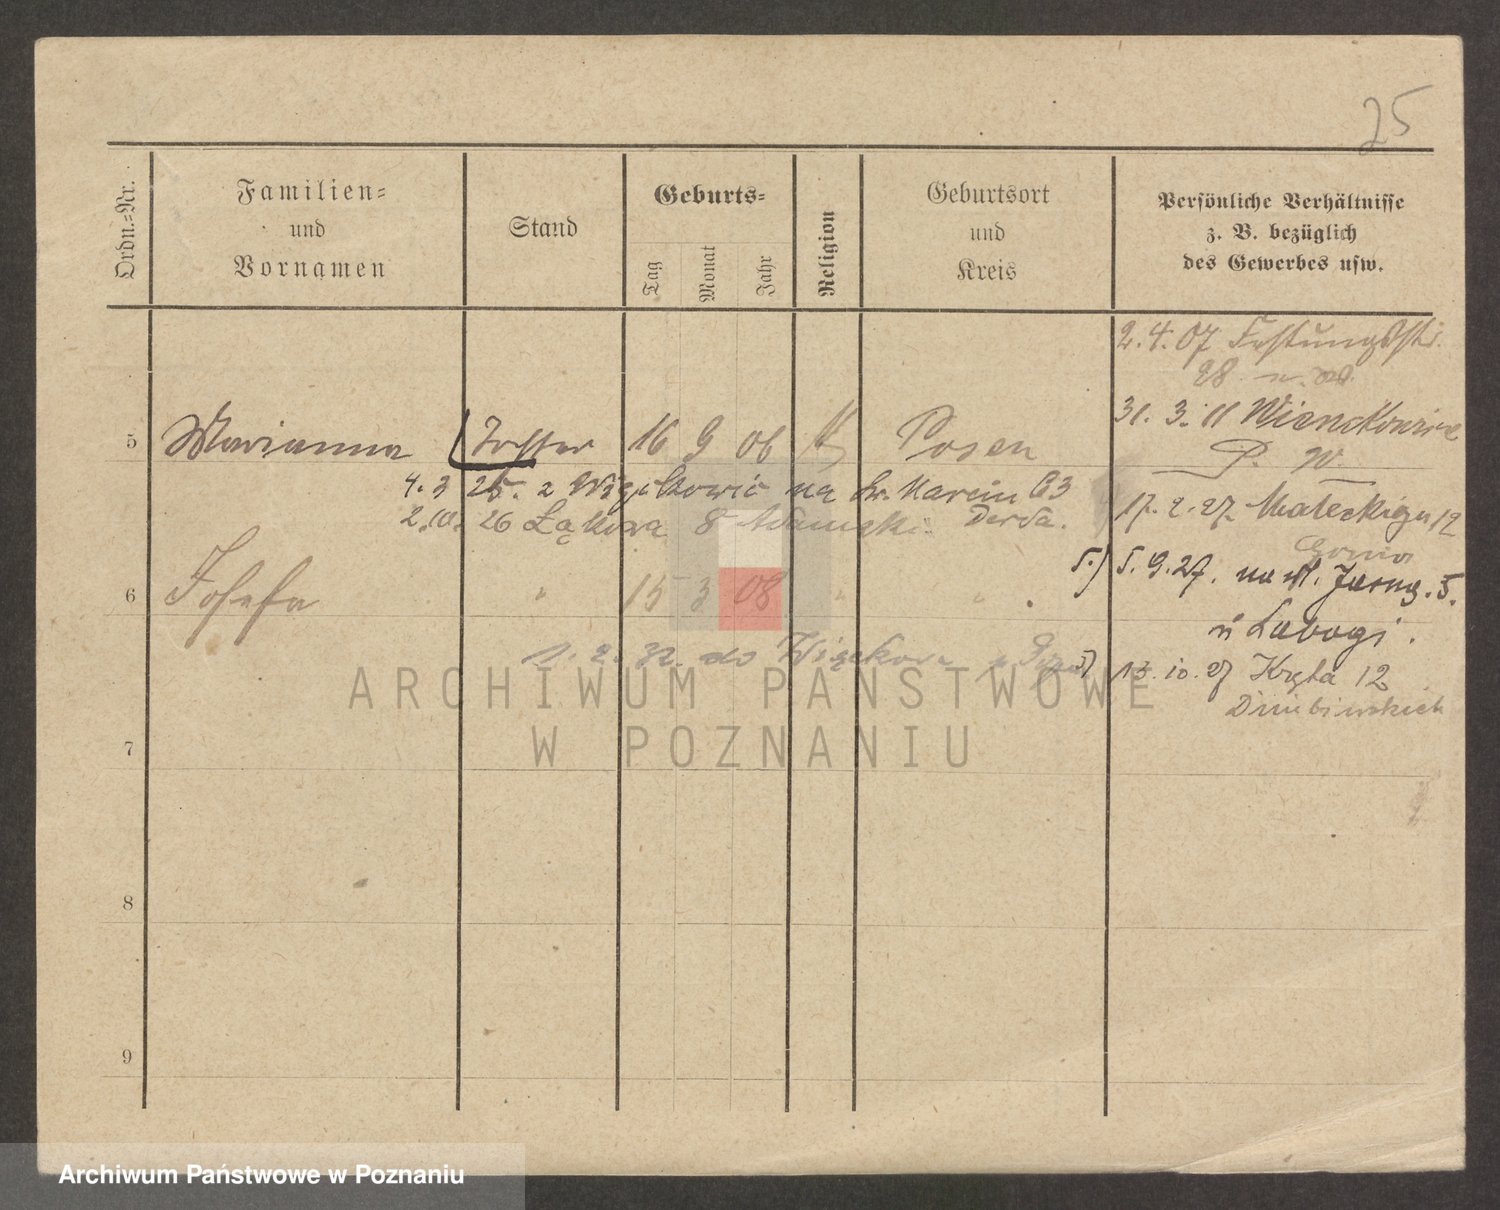 25
Ordn.-Nr.
Familien-
und
Vornamen
Stand
Geburts-
Tag
Monat
Jahr
Religion
Geburtsort
und
Kreis
Persönliche Verhältnisse
z. B. bezüglich
des Gewerbes usw.
2.4.07 Festungsstr.
28
31. 3. 11
P. W.
5 Marianna Tochter 16 9 06 k Posen
4. 3 25. z na św. Marcin 63
2.10. 26 Łąkowa 8 Adamski
17. 2. 27. Małeckiego 12
5.) 5. 9. 27. na ul. Jasną. 5.
6 Josefa " 15 3 08 " "
u
1. 2. 32. do
13. 10. 27 Kręta 12
7
8
9
ARCHIWUM PAŃSTWOWE
W POZNANIU
Archiwum Państwowe w Poznaniu